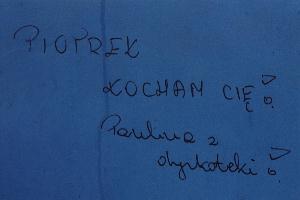 PIOTREK
KOCHAM CIĘ!
Paulina z
dyskoteki!